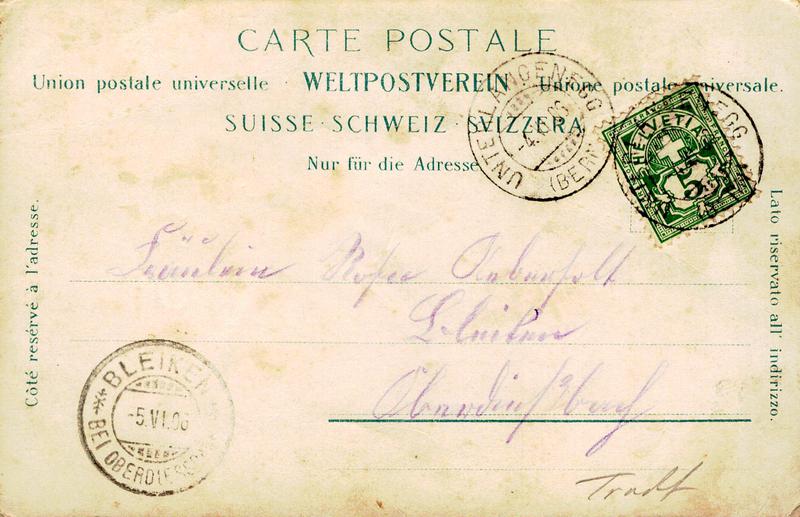 CARTE POSTALE
Union postale universelle · WELTPOSTVEREIN · Unione postale universale.
SUISSE · SCHWEIZ · SVIZZERA
Nur für die Adresse
UNTERLANGENEGG
(BERN)
EGG
HELVETIA
5
Côté resérvé à l'adresse.
Lato riservato all' indirizzo.
Fräulein Rosa
Bleiken
Oberdießbach
BLEIKEN
-5.VI.06
BEI OBERDIESSB